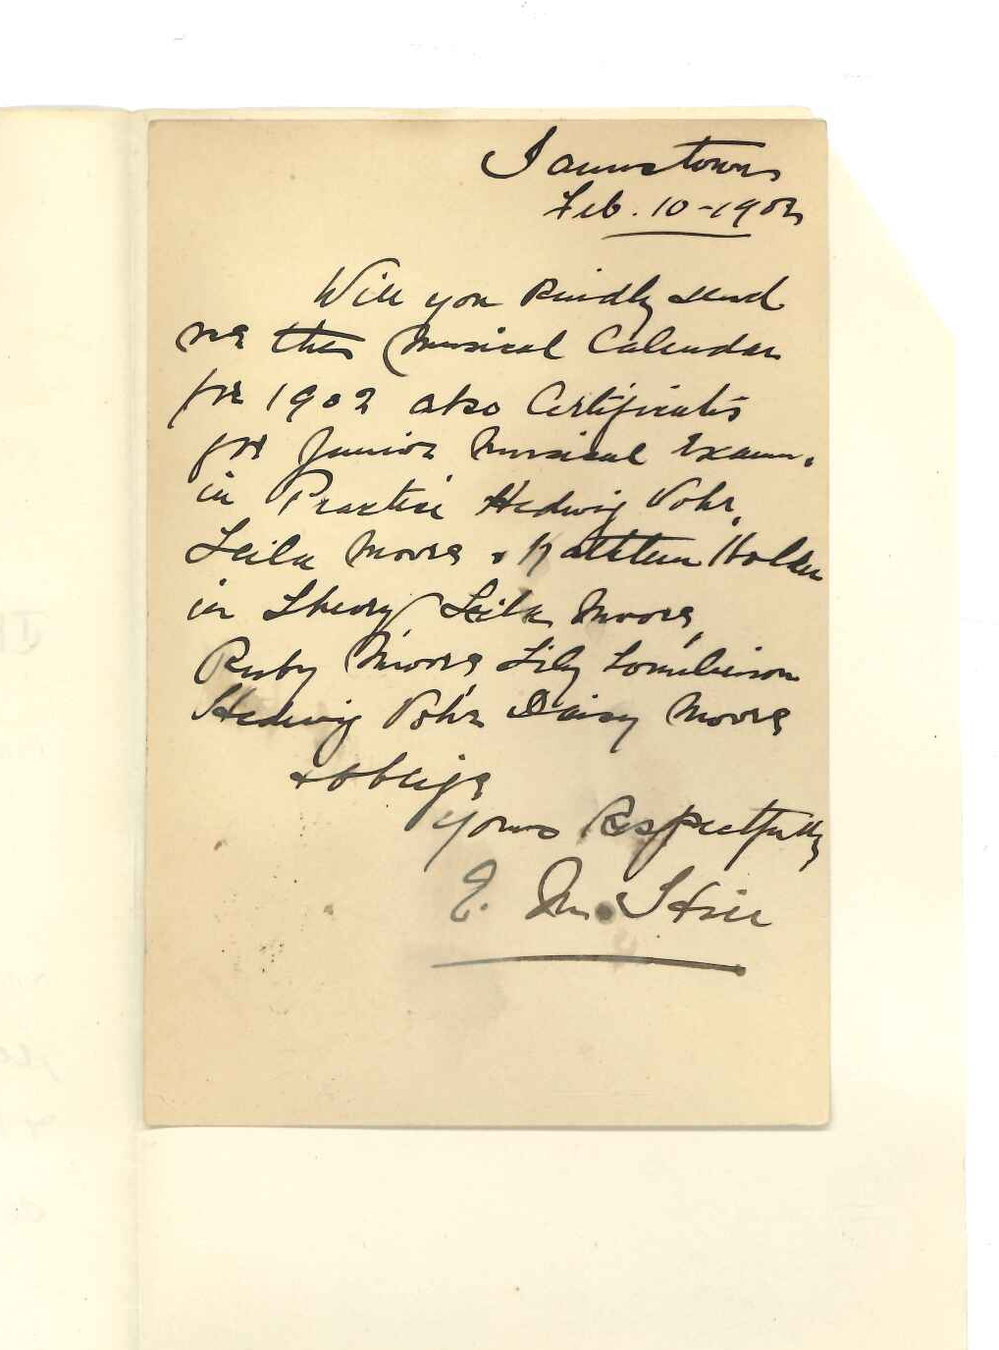 Jamestown
Feb. 10-1902
Will you kindly send
me the Musical Calendar
for 1902 also Certificates
for Junior Musical Exam.
in Practice Hedwig Vohr,
Leila Moore & Kathleen Holder
in Theory Leila Moore,
Ruby Moore, Lily Tomlinson
Hedwig Vohr Daisy Moore
& oblige
Yours Respectfully
E. M. Hill